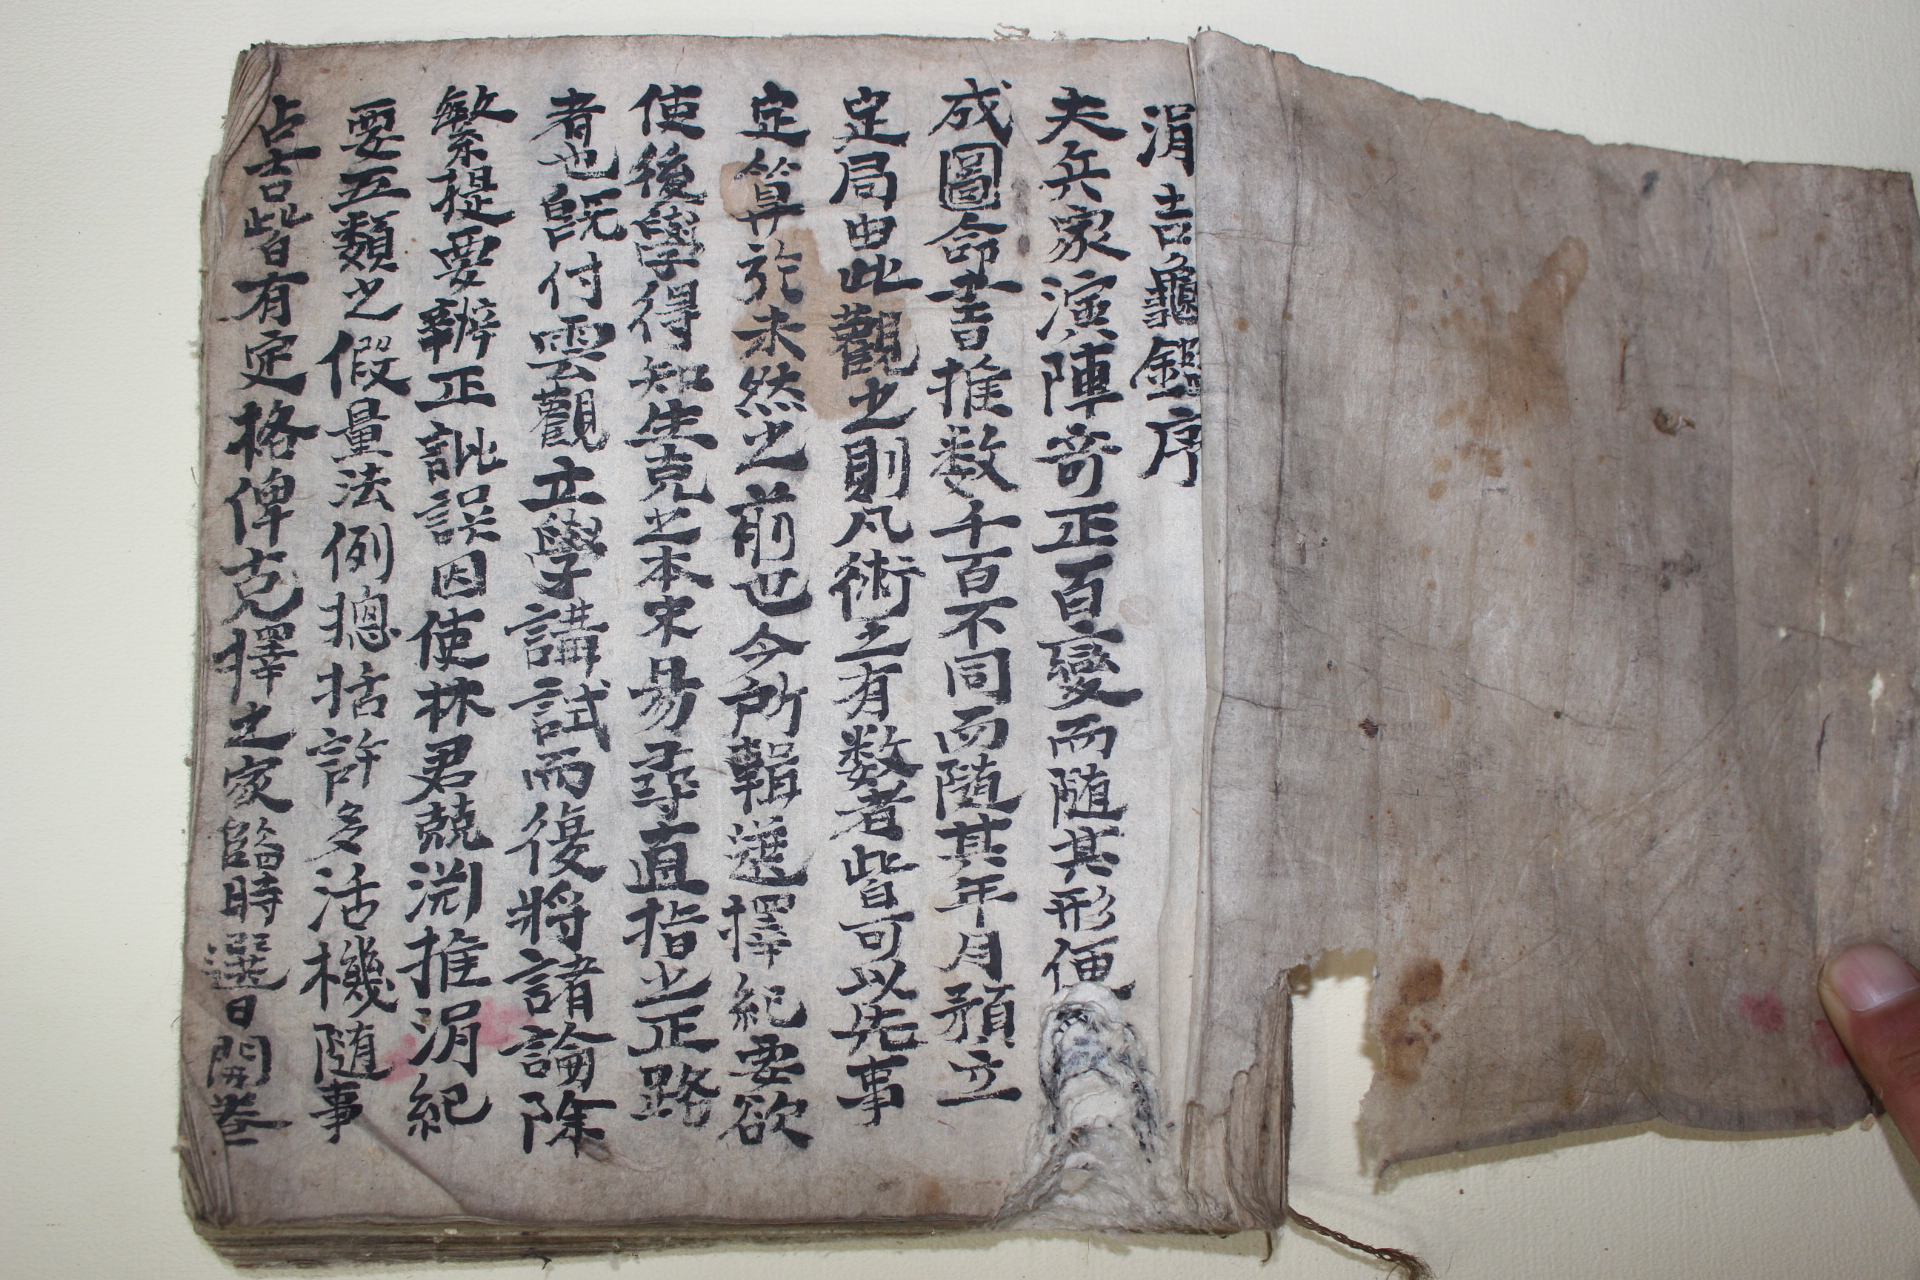 涓吉龜鑑序
夫兵家演陣奇正百變而随其形便
成圖命書推数千百不同而随其年月預立
定局由此觀之則凡術之有数者皆可以先事
定算於未然之前也今所輯選擇紀要欲
使後學得知生克之本末易尋直指之正路
者也旣付雲觀立學講試而復將諸論除
繁提要辨正訛誤因使林君兢渊推涓紀
要五類之假量法例摠括許多活機随事
占吉皆有定格俾克擇之家臨時選日開卷